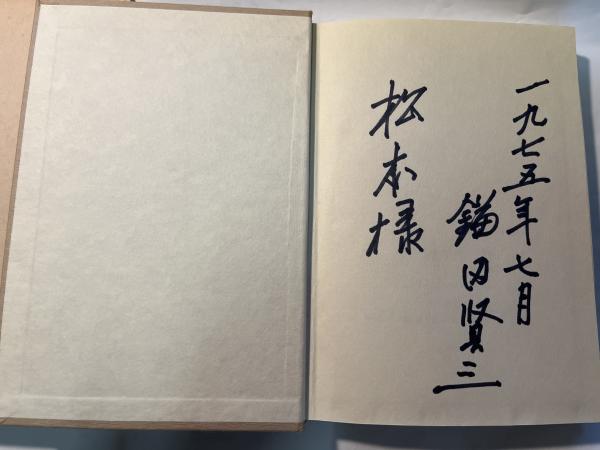 一九七五年七月
錨田賢三
松本様